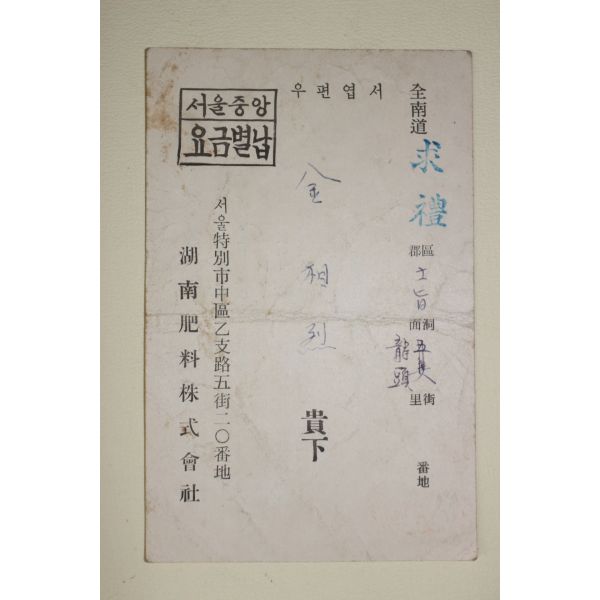 우편엽서
全南道 求禮 郡區 土旨 面洞 五美 里街 番地
龍頭
金相烈 貴下
서울중앙
요금별납
서울特別市中區乙支路五街二〇番地
湖南肥料株式會社